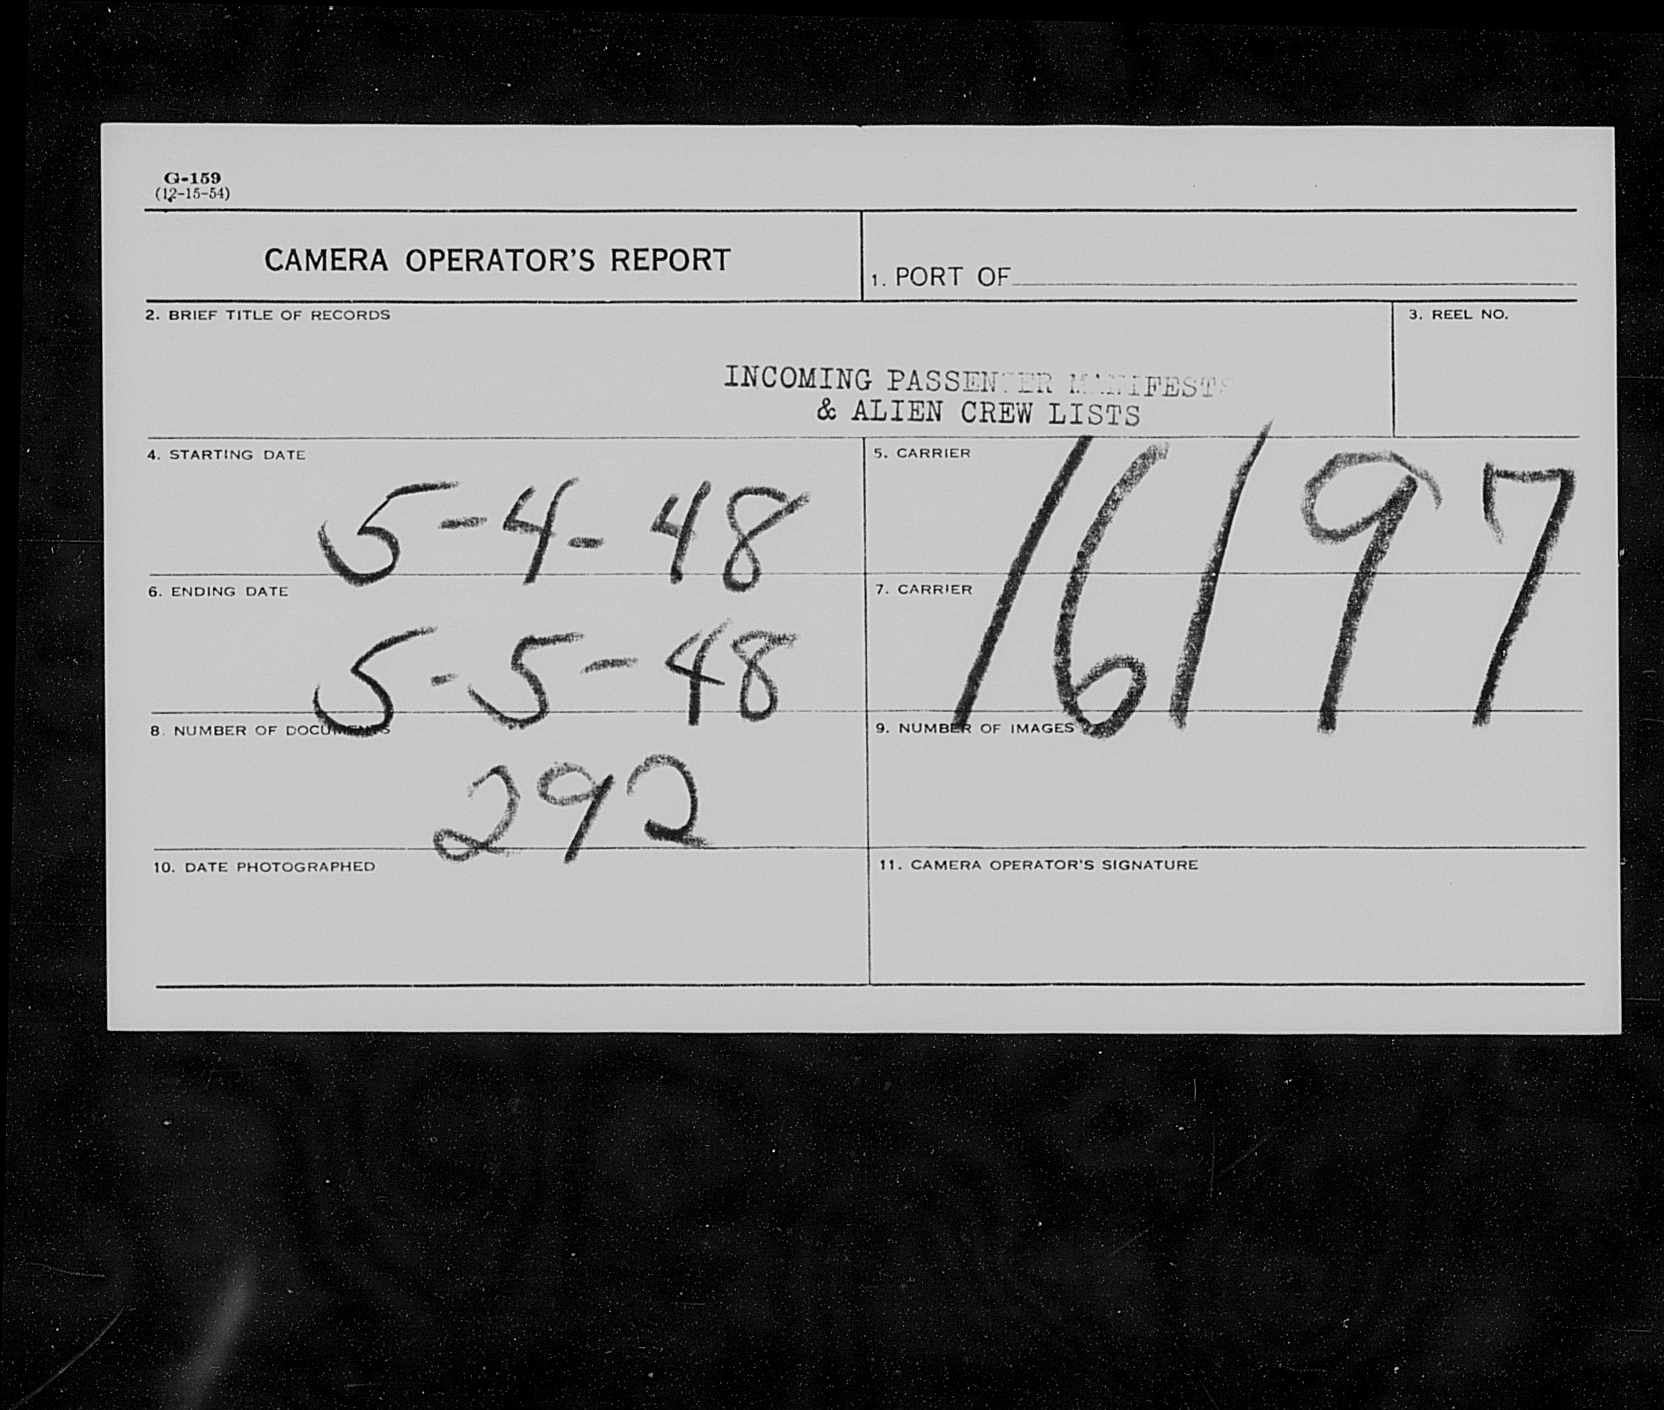 G-159
(12-15-54)
CAMERA OPERATOR'S REPORT
1. PORT OF
2. BRIEF TITLE OF RECORDS
3. REEL NO.
INCOMING PASSENGER MANIFESTS
& ALIEN CREW LISTS
4. STARTING DATE
5-4-48
5. CARRIER
16197
6. ENDING DATE
5-5-48
7. CARRIER
8. NUMBER OF DOCUMENTS
292
9. NUMBER OF IMAGES
10. DATE PHOTOGRAPHED
11. CAMERA OPERATOR'S SIGNATURE